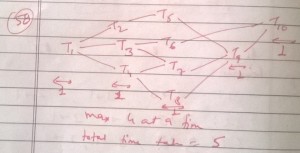 58
T5
T2
T10
T1 T3 T6
T9
T4 T7
1 1 1 1
T8
1
max 4 at a time
total time taken = 5